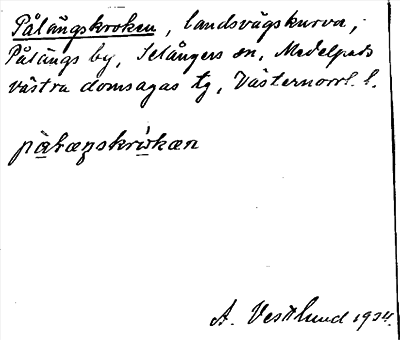 Pålängskroken, landsvägskurva,
Pålängs by, Selångers sn, Medelpads
västra domsagas tg, Västernorrl. l.
A. Vestlund 1934.